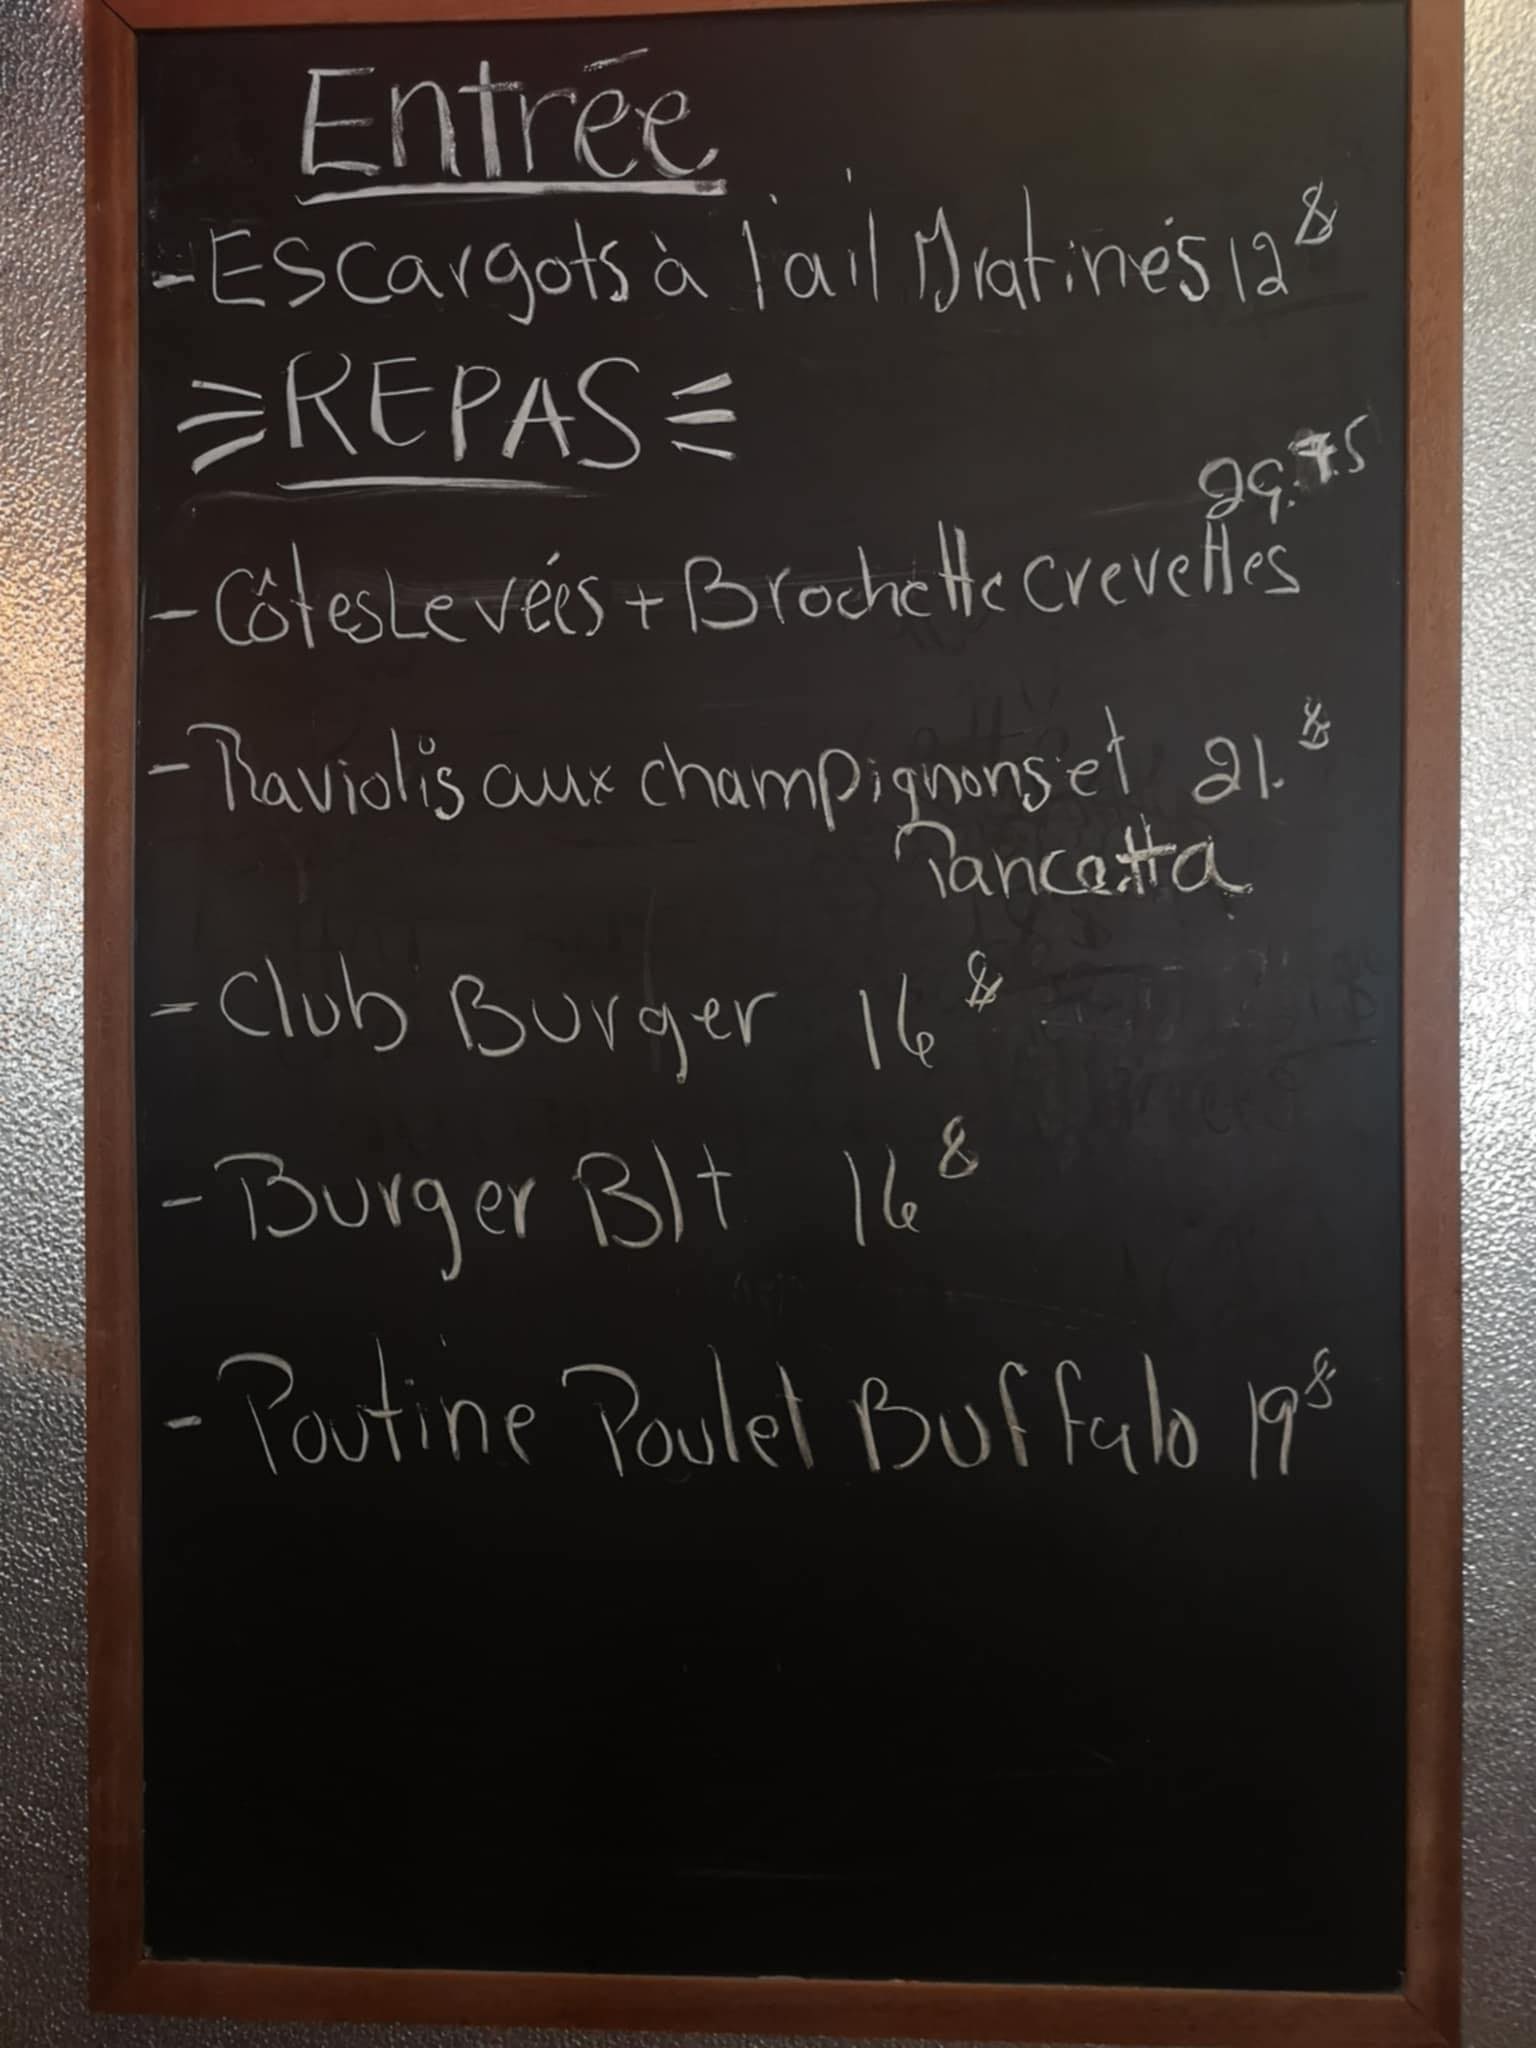 Entrée
- Escargots à l'ail Gratinés 12$
REPAS
29.75
- Côtes Levées + Brochette crevettes
- Raviolis aux champignons et 21.$
Pancetta
- Club Burger 16$
- Burger Blt 16$
- Poutine Poulet Buffalo 19$